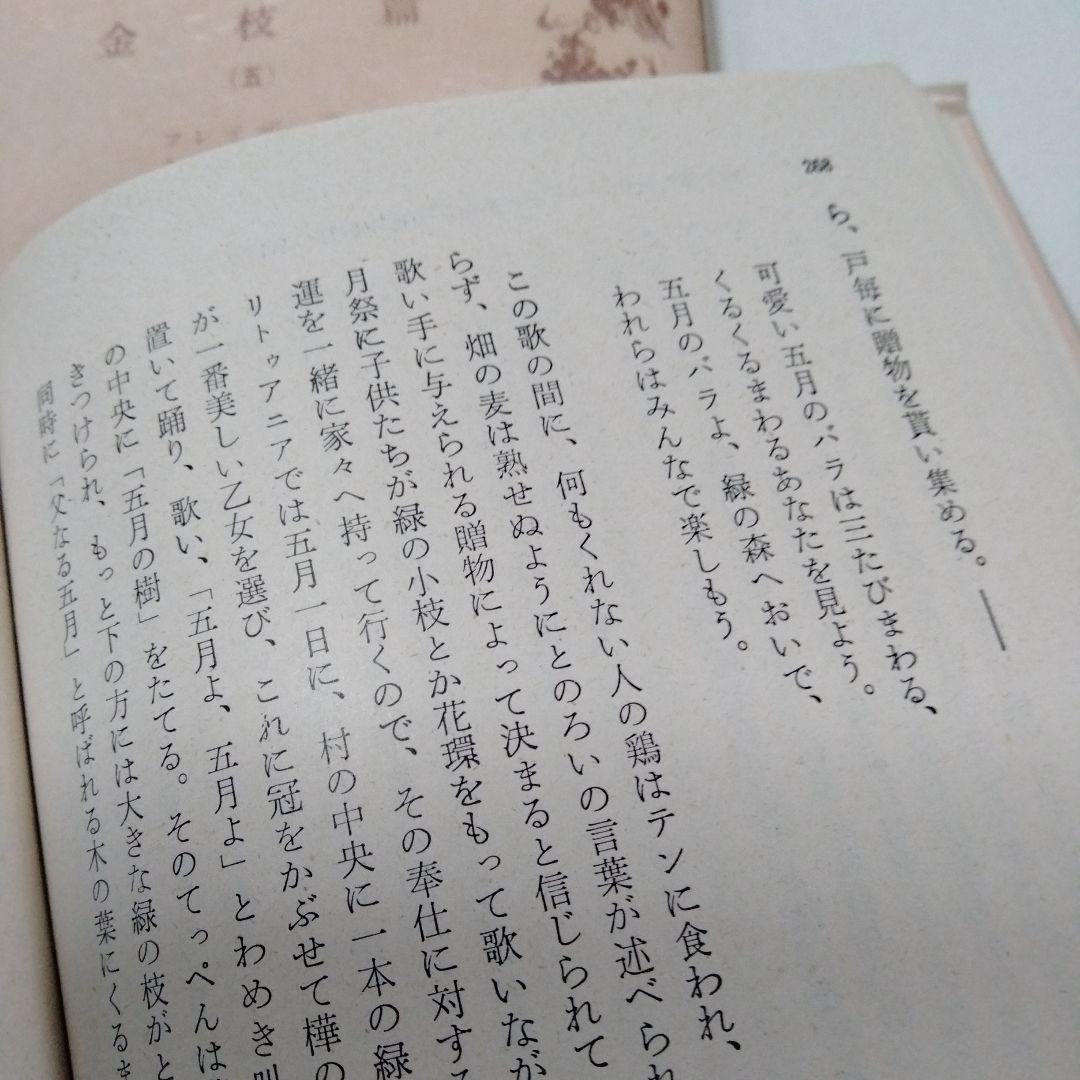 金枝篇
(五)
268
ら、戸毎に贈物を貰い集める。――
可愛い五月のバラは三たびまわる、
くるくるまわるあなたを見よう。
五月のバラよ、緑の森へおいで、
われらはみんなで楽しもう。
この歌の間に、何もくれない人の鶏はテンに食われ、
らず、畑の麦は熟せぬようにとのろいの言葉が述べられ
歌い手に与えられる贈物によって決まると信じられて
月祭に子供たちが緑の小枝とか花環をもって歌いなが
運を一緒に家々へ持って行くので、その奉仕に対する
リトゥアニアでは五月一日に、村の中央に一本の緑
が一番美しい乙女を選び、これに冠をかぶせて樺の
置いて踊り、歌い、「五月よ、五月よ」とわめき叫
の中央に「五月の樹」をたてる。そのてっぺんは
きつけられ、もっと下の方には大きな緑の枝がと
同時に「父なる五月」と呼ばれる木の葉にくるま